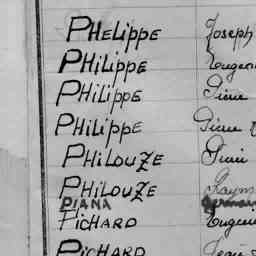 PHELIPPE Joseph
PHILIPPE Eugene
PHILIPPE Pierre
PHILIPPE Pierre
PHILOUZE
PHILOUZE Raym
PIANA Germain
PICHARD Eugene
PICHARD Jean